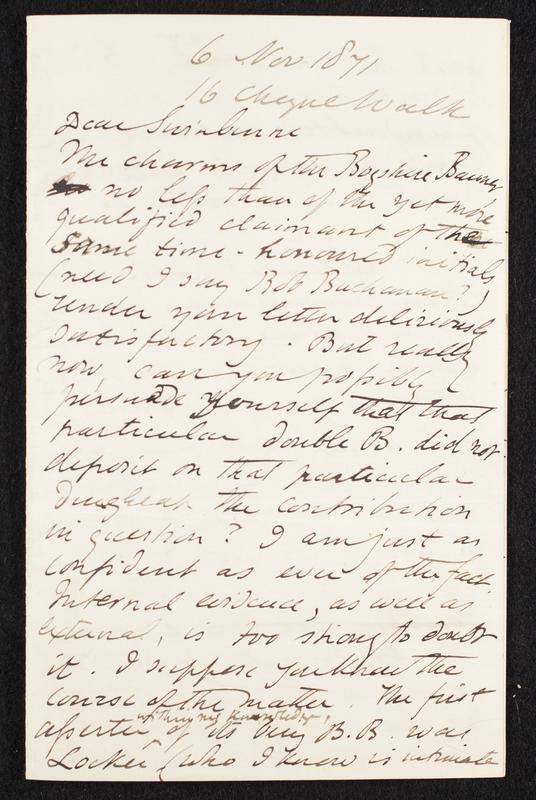 6 Nov 1871
16 Cheyne Walk
Dear Swinburne
The charms of the Bagshire
no less than of the yet more
qualified claimant of the
same time-honoured initials
(need I say Bob Buchanan?)
render your letter deliciously
satisfactory. But really
now, can you possibly
persuade yourself that that
particular double B. did not
deposit on that particular
dungheap the contribution
in question? I am just as
confident as ever of the fact.
Internal evidence, as well as
external, is too strong to doubt
it. I suppose you know the
course of the matter. The first
within my knowledge,
asserter of its being B.B. was
Locker (who I know is intimate